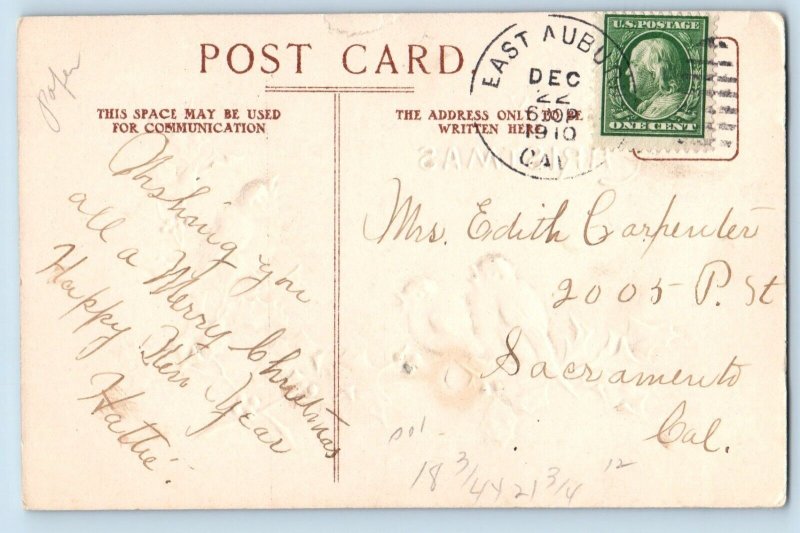 POST CARD
THIS SPACE MAY BE USED
FOR COMMUNICATION
THE ADDRESS ONLY TO BE
WRITTEN HERE
EAST AUBURN
DEC
22
1910
CAL
U.S. POSTAGE
ONE CENT
CHRISTMAS
Wishing you
all a Merry Christmas
Happy New Year
Hattie.
Mrs. Edith Carpenter
2005 P. St
Sacramento
Cal.
18 3/4 x 21 3/4
12